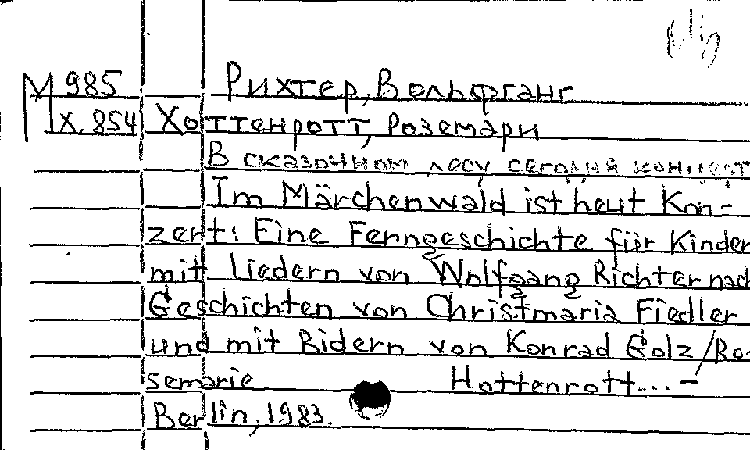 М 985 Рихтер, Вольфганг
IX. 854 Хоттенротт, Роземари
В сказочном лесу сегодня концерт
Im Märchenwald ist heut Kon-
zert: Eine Ferngeschichte für Kinder
mit Liedern von Wolfgang Richter nach
Geschichten von Christmaria Fiedler
und mit Bidern von Konrad Golz/Ro-
semarie Hottenrott... –
Berlin, 1983.